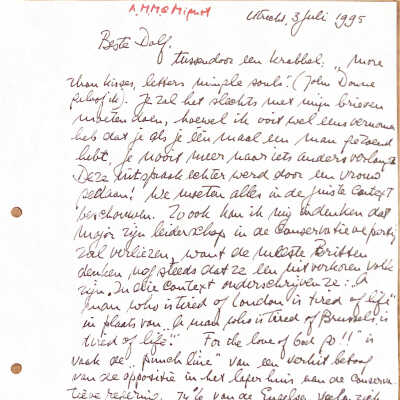 A.M.M.
Utrecht, 3 juli 1995
Beste Dolf,
tussendoor een krabbel: „More
than kisses, letters mingle souls". (John Donne
geloof ik). Je zal het slechts met mijn brieven
moeten doen, hoewel ik ooit wel eens vernomen
heb dat je als je één maal een man gezoend
hebt, je nooit meer naar iets anders verlangt.
Deze uitspraak echter werd door een vrouw
gedaan! We moeten alles in de juiste context
beschouwen. Zo ook kan ik mij indenken dat
Major zijn leiderschap in de Conservatieve partij
zal verliezen, want de meeste Britten
denken nog steeds dat ze een uitverkoren volk
zijn. In die context onderschrijven ze: „a
man who is tired of London, is tired of life"
in plaats van „a man who is tired of Brussels, is
tired of life". „For the love of God go!!" is
vaak de „punch line" van een verhit betoog
van de oppositie in het lagerhuis aan de conserva-
tieve regering.